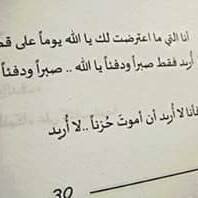 أنا التي ما اعترضت لك يا الله يوماً على
أُريد فقط صبراً ودفئاً يا الله .. صبراً ودفئاً
فأنا لا أُريد أن أموتَ حُزناً ..لا أُريد
30